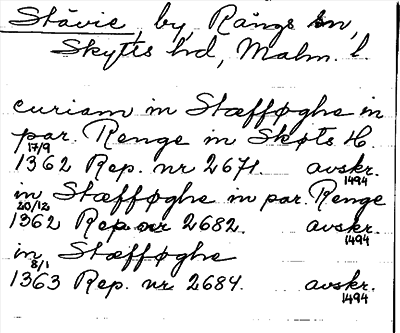 Stävie, by, Rängs sn,
Skytts hd, Malm. l.
curiam in Stæfføghe in
par. Renge in Skøts H.
17/9
1362 Rep. nr 2671. avskr.
1494
in Stæfføghe in par. Renge
20/12
1362 Rep nr 2682. avskr.
1494
in Stæfføghe
8/1
1363 Rep. nr 2684. avskr.
1494